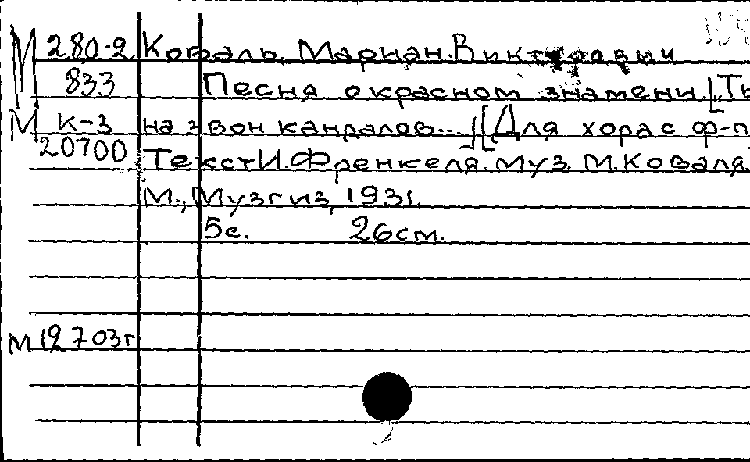 М 280-2 Коваль, Мариан Викторович
833 Песня о красном знамени. [Ты
М К-3 на звон кандалов...] [Для хора с ф-п
20700 Текст И. Френкеля. Муз. М. Коваля.
М., Музгиз, 1931.
5с. 26см.
М 12703г